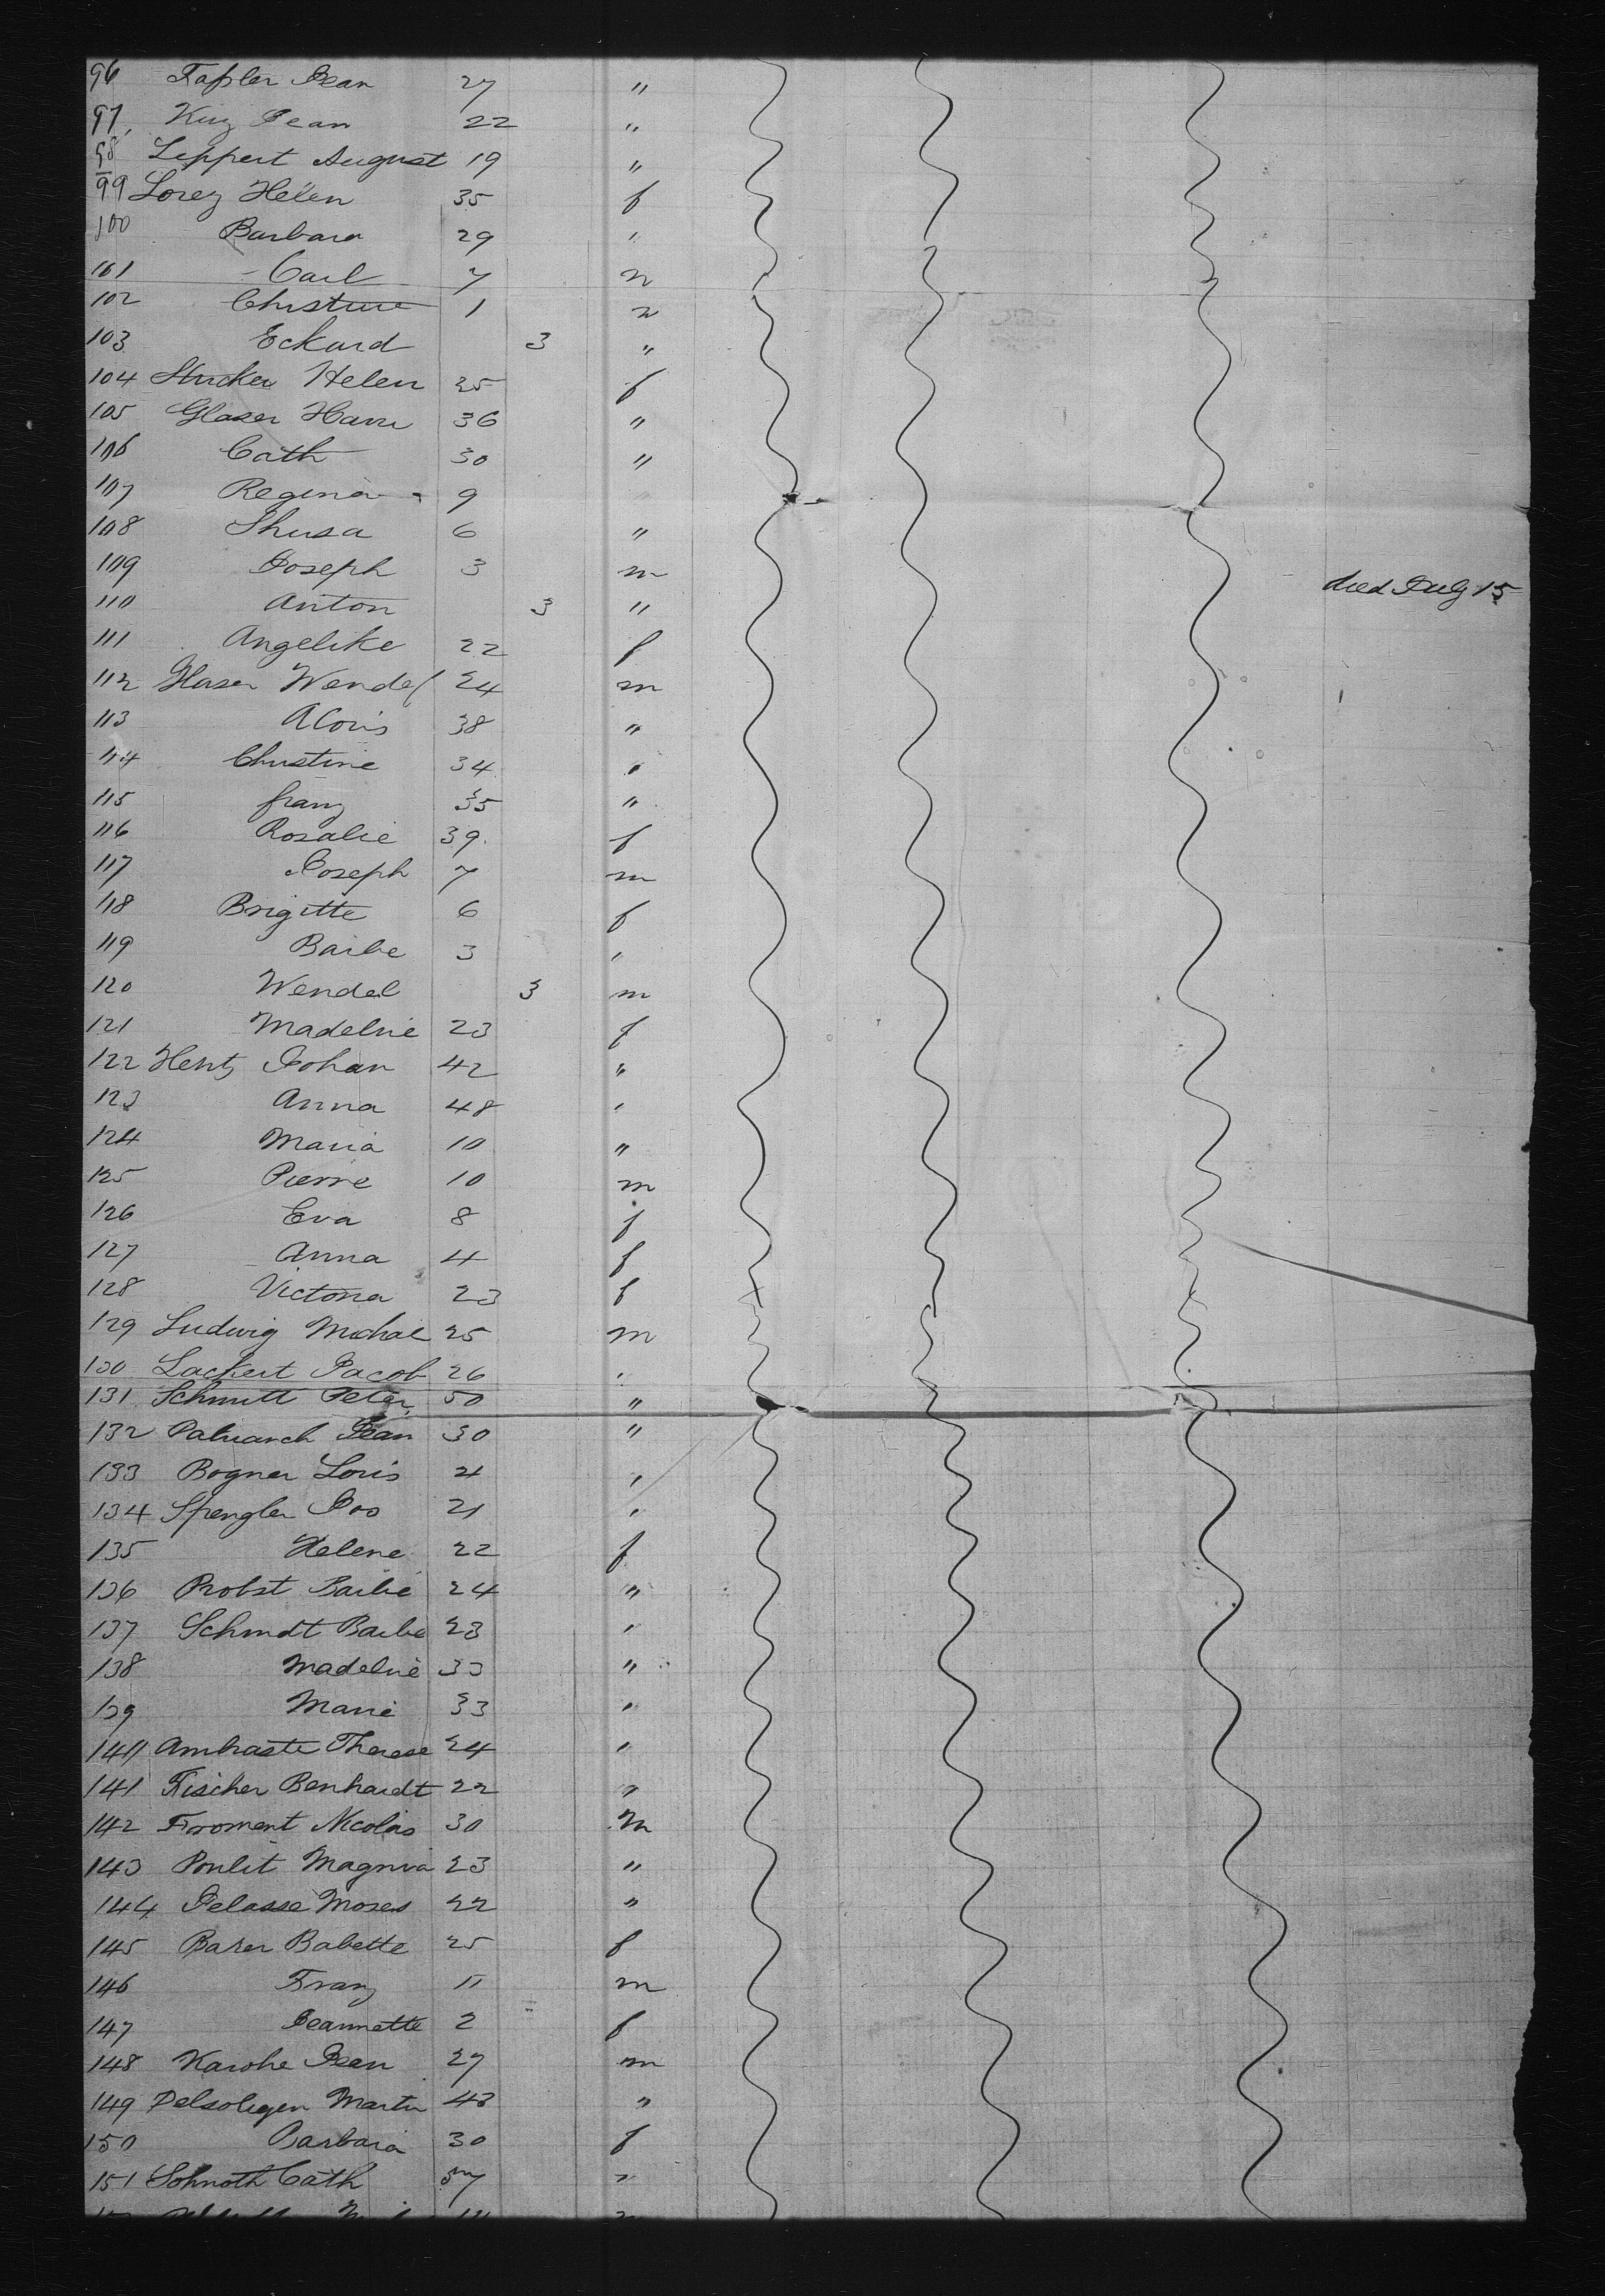 96 Fassler Jean 27 "
97, Kuz Jean 22 "
98 Leppert August 19 "
99 Lorez Helen 35 f
100 Barbara 29 "
101 Carl 7 m
102 Christine 1 "
103 Eckard 3 "
104 Stucker Helen 25 f
105 Glaser Hann 36 "
106 Cath 30 "
107 Regina 9
108 Thusa 6 "
109 Joseph 3 m
110 Anton 3 " died July 15
111 Angelike 22 f
112 Glaser Wendel 24 m
113 Alois 38 "
114 Christine 34 "
115 franz 35 "
116 Rosalie 39 f
117 Joseph 7 m
118 Brigitte 6 f
119 Barbe 3 "
120 Wendel 3 m
121 Madeline 23 f
122 Hentz Johan 42 "
123 Anna 48 "
124 Maria 10 "
125 Pierre 10 m
126 Eva 8 f
127 Anna 4 f
128 Victoria 23 f
129 Ludwig Michael 25 m
130 Lackert Jacob 26 "
131 Schmitt Peter 50 "
132 Patriarch Jean 30 "
133 Bogner Loris 21 "
134 Spengler Jos 21 "
135 Helene 22 f
136 Probst Barbe 24 "
137 Schmdt Barbe 23 "
138 Madeline 33 "
139 Marie 33 "
140 Ambraste Therese 24 "
141 Fischer Benhardt 22 "
142 Froment Nicolas 30 m
143 Poulit Magnva 23 "
144 Jelasse Moses 22 "
145 Baser Babette 25 f
146 Franz 11 m
147 Jeannette 2 f
148 Karohe Jean 27 m
149 Pelsoligen Martin 43 "
150 Barbara 30 f
151 Sohnoth Cath 57 "